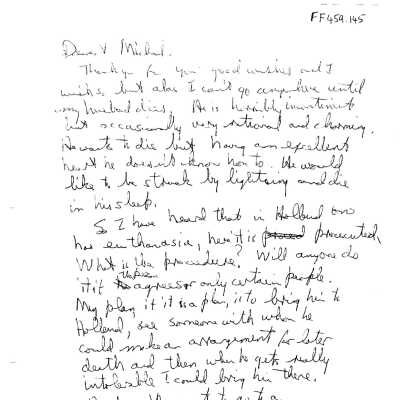 FF459.145
Dear Michael.
Thank you for your good wishes and I
wish so, but alas I can't go anywhere until
my husband dies. He is horribly incontinent
but occasionally very rational and charming.
He wants to die but having an excellent
heart he doesn't know how to. He would
like to be struck by lightning and die
in his sleep.
So I have heard that in Holland one
has euthanasia, here it is prosecuted.
What is the procedure? Will anyone do
it if
agrees or only certain people.
My plan, if it is a plan, is to bring him to
Holland, see someone with whom he
could make an arrangement for later
death and then when he gets really
intolerable I could bring him there.